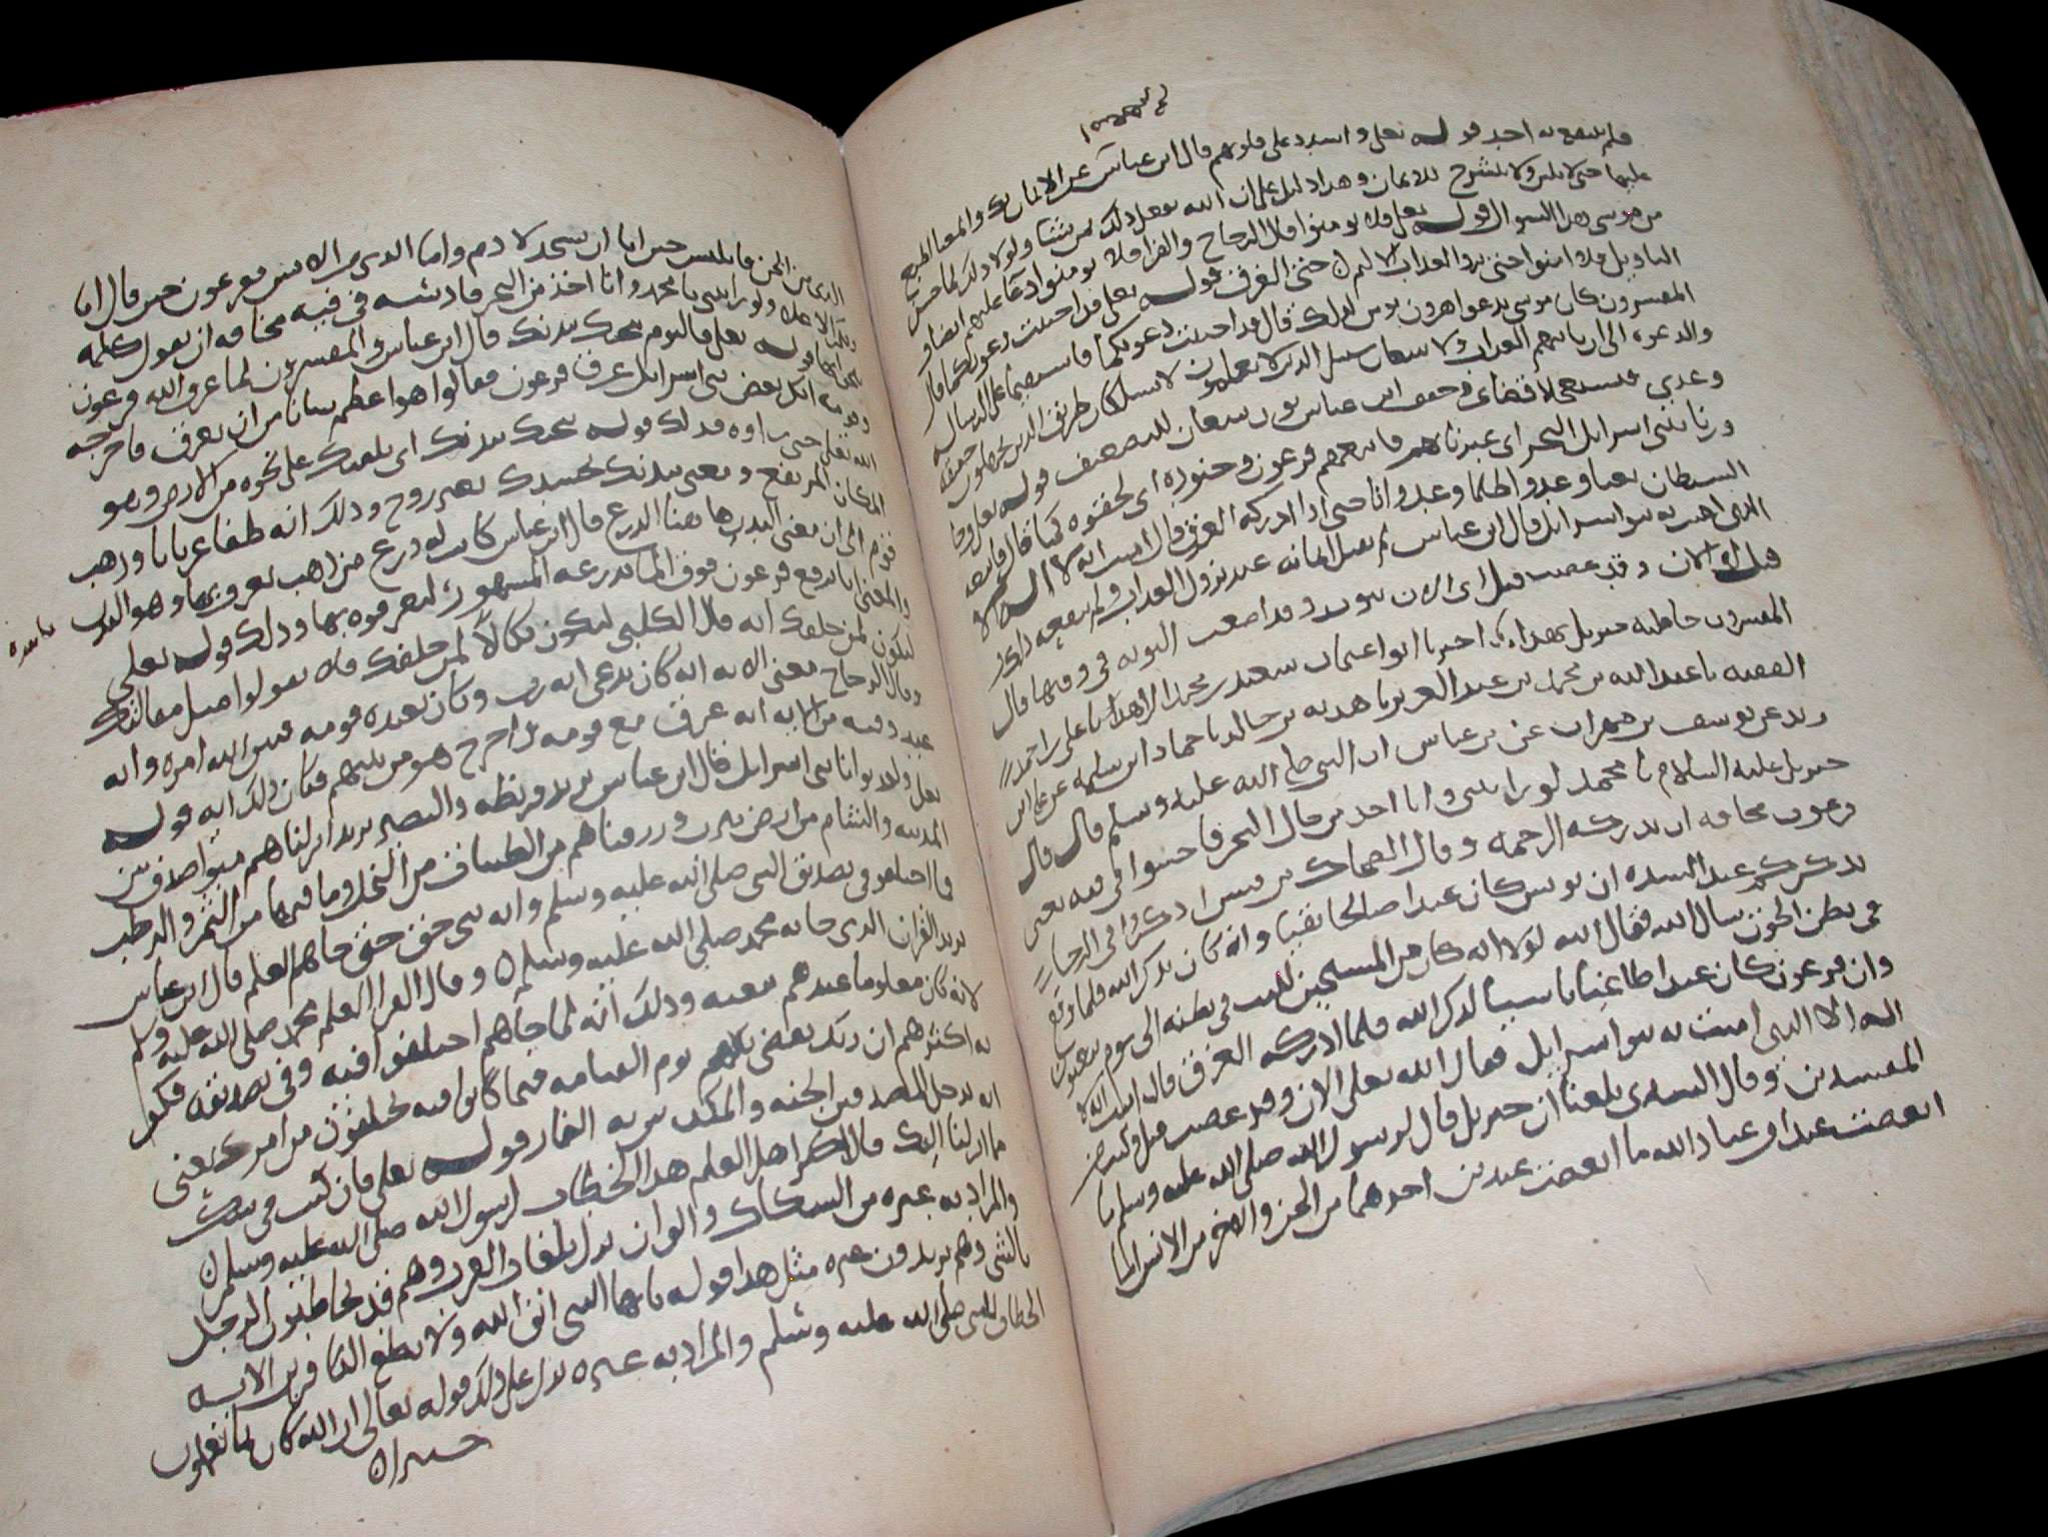 فلم ينتفع به احد قوله تعلى واشدد على قلوبهم قال ابن عباس عن الايمان بك والمعنا اطبع
عليها حتى لا تلين ولا تنشرح للايمان وهذا دليل على ان الله يفعل ذلك بمن يشا ولولا ذلك لما حسن
من موسى هذا السوال قوله تعلى فلا يومنوا قال الزجاج والفرا فلا يومنوا دعا عليهم ايضا و
التاويل فلا امنوا حتى يروا العذاب الاليم حتى الغرق قوله تعلى قد اجيبت دعوتكما قال
المفسرون كان موسى يدعوا هرون يومن لذلك قال قد اجيبت دعوتكما فاستقيما على الرسالة
والدعوة الى ان ياتيهم العذاب ولا تتبعان سبيل الذين لا يعلمون لا تسلكان طريق الذين يجهلون حقيقة
وعدي فتستعجلا قضاى وخفف ابن عباس نون تتبعان للتضعيف قوله تعلى وجا
وزنا ببنى اسرايل البحر اى عبرنا بهم فاتبعهم فرعون وجنوده اى لحقوه كما قال فاتبعه
الشيطان بغيا وعدوا ظلما وعدوانا حتى اذا ادركه الغرق قال امنت انه لا اله الا
الذى امنت به بنو اسرايل قال ابن عباس لم يقبل ايمانه عند نزول العذاب ولم ينفعه ذلك
قيل له الان وقد عصيت قبل اى الان تتوب وقد اضعت التوبة فى وقتها قال
المفسرون خاطبه جبريل بهذا اخبرنا ابو اعثمان سعيد بن محمد الزاهد انا على بن احمد
الفقيه نا عبد الله بن محمد بن عبد العزيز نا هدبه بن خالد نا حماد ابن سلمة عن على ابن
زيد عن يوسف بن مهران عن بن عباس ان النبى صلى الله عليه وسلم قال قال
جبريل عليه السلام يا محمد لو رايتنى وانا اخذ من حال البحر فاحشوا فى فيه يعنى
فرعون مخافة ان تدركه الرحمة وقال الضحاك بن قيس اذكروا فى الرخا
يذكركم عند الشده ان يونس كان عبدا صالحا تقيا وانه كان يذكر الله فلما وقع
فى بطن الحوت سال الله فقال الله لولا انه كان من المسبحين للبث فى بطنه الى يوم يبعثون
وان فرعون كان عبدا طاغيا ناسيا لذكر الله فلما ادركه الغرق قال امنت انه لا
اله الا الذى امنت به بنو اسرايل فقال الله تعلى الان وقد عصيت قبل وكنت من
المفسدين وقال السدى بلغنا ان جبريل قال لرسول الله صلى الله عليه وسلم ما
ابغضت عبدا من عباد الله ما ابغضت عبدين احدهما من الجن والاخر من الانس اما
الذى من الجن فابليس حين ابا ان يسجد لادم واما الذى من الانس ففرعون حين قال انا
ربكم الاعلى ولو رايتنى يا محمد وانا اخذ من البحر فادسه فى فيه مخافة ان يقول كلمة
ينجا بها قوله تعلى فاليوم ننجيك ببدنك قال ابن عباس والمفسرون لما غرق الله فرعون
وقومه انكر بعض بنى اسرايل غرق فرعون فقالوا هو اعظم شانا من ان يغرق فاخرجه
الله تعلى حتى راوه فذلك قوله ننجيك ببدنك اى نلقيك على نجوة من الارض وهو
المكان المرتفع ومعنى ببدنك بجسدك بغير روح وذلك انه طفا عريانا وذهب
قوم الى ان معنى البدن ها هنا الدرع قال ابن عباس كانت له درع من ذهب يعرف بها وهو البدن
والمعنى انا نرفع فرعون فوق الما بدرعه المشهورة ليعرفوه بها وذلك قوله تعلى
لتكون لمن خلفك اية قال الكلبى لتكون نكالا لمن خلفك فلا يقولوا مثل مقالتك
وقال الزجاج معنى الاية انه كان يدعى انه رب وكان يعبده قومه فبين الله امره وانه
عبد وفيه من الاية انه غرق مع قومه ثم اخرج هو من بينهم فكان ذلك اية قوله
تعلى ولقد بوانا بنى اسرايل قال ابن عباس يريد قريظة والنضير يريد انزلناهم مبوا صدق بين
المدينة والشام من ارض يثرب ورزقناهم من الطيبات من النخل وما فيها من التمر والرطب
فما اختلفوا فى تصديق النبى صلى الله عليه وسلم وانه نبى حق حتى جاهم العلم قال ابن عباس
يريد القران الذى جا به محمد صلى الله عليه وسلم وقال الفرا العلم محمد صلى الله عليه وسلم
لانه كان معلوما عندهم بنعته وذلك انه لما جاهم اختلفوا فيه وفى تصديقه فكفر
به اكثرهم ان ربك يقضى بينهم يوم القيامة فيما كانوا فيه يختلفون من امرك يعنى
انه يدخل المصدقين الجنة والمكذبين به النار قوله تعلى فان كنت فى شك
مما انزلنا اليك قال اكثر اهل العلم هذا الخطاب لرسول الله صلى الله عليه وسلم
والمراد به غيره من الشكاك والقران نزل بلغات العرب وهم قد يخاطبون الرجل
بالشى وهم يريدون غيره مثل هذا قوله يا ايها النبى اتق الله ولا تطع الكافرين الاية
الخطاب للنبى صلى الله عليه وسلم والمراد به غيره يدل على ذلك قوله تعالى ان الله كان بما تعملون
خبيرا